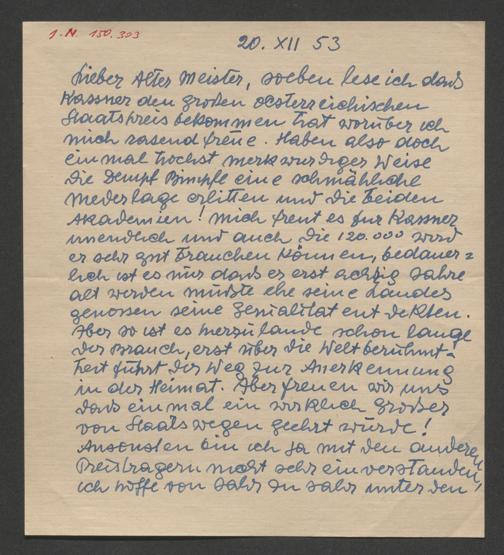 I.N. 150.303
20. XII 53
Lieber Alter Meister, soeben lese ich dass
Kassner den großen oesterreichischen
Staatspreis bekommen hat worüber ich
mich rasend freue. Haben also doch
einmal höchst merkwürdiger Weise
die Dempf Pimpfe eine schmähliche
Niederlage erlitten und die beiden
Akademien! Mich freut es für Kassner
unendlich und auch die 120.000 wird
er sehr gut brauchen können, bedauer=
lich ist es nur dass er erst achzig Jahre
alt werden müßte ehe seine Landes
genossen seine Genialität entdekten.
Aber so ist es hierzulande schon lange
der Brauch, erst über die Weltberühmt-
heit führt der Weg zur Anerkennung
in der Heimat. Aber freuen wir uns
dass einmal ein wirklich Großer
von Staats wegen geehrt wurde!
Ansonsten bin ich ja mit den anderen
Preisträgern nicht sehr einverstanden,
ich hoffe von Jahr zu Jahr unter den